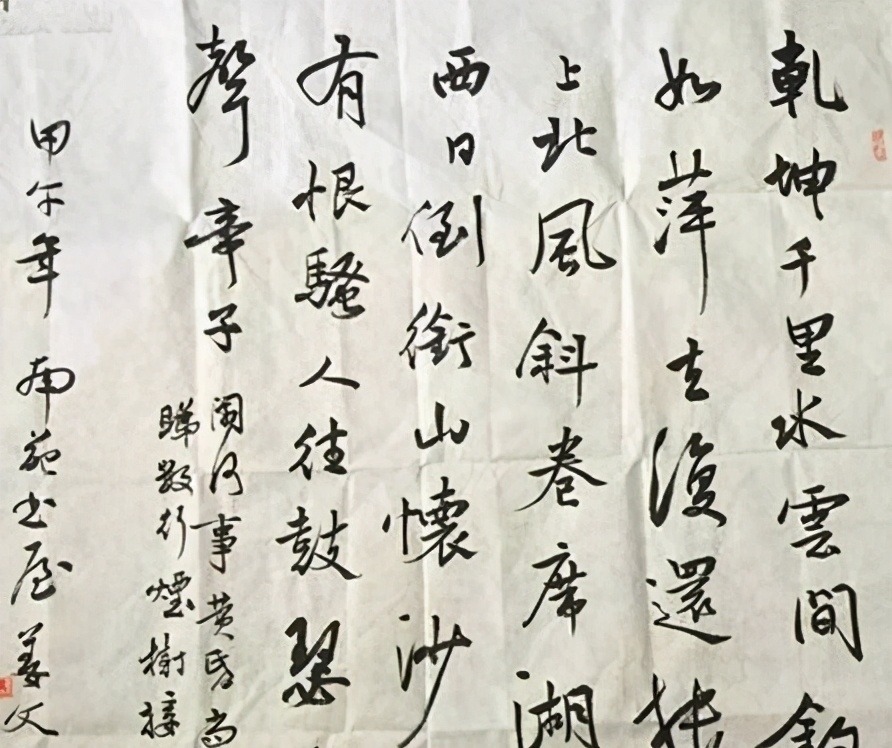 乾坤千里水雲間釣
如萍去復還
上北風斜卷席湖
西日倒銜山懷沙
有恨騷人往鼓瑟
聲帝子
閑何事黃昏尚
睇數行煙樹接
甲午年 南苑书屋 姜文